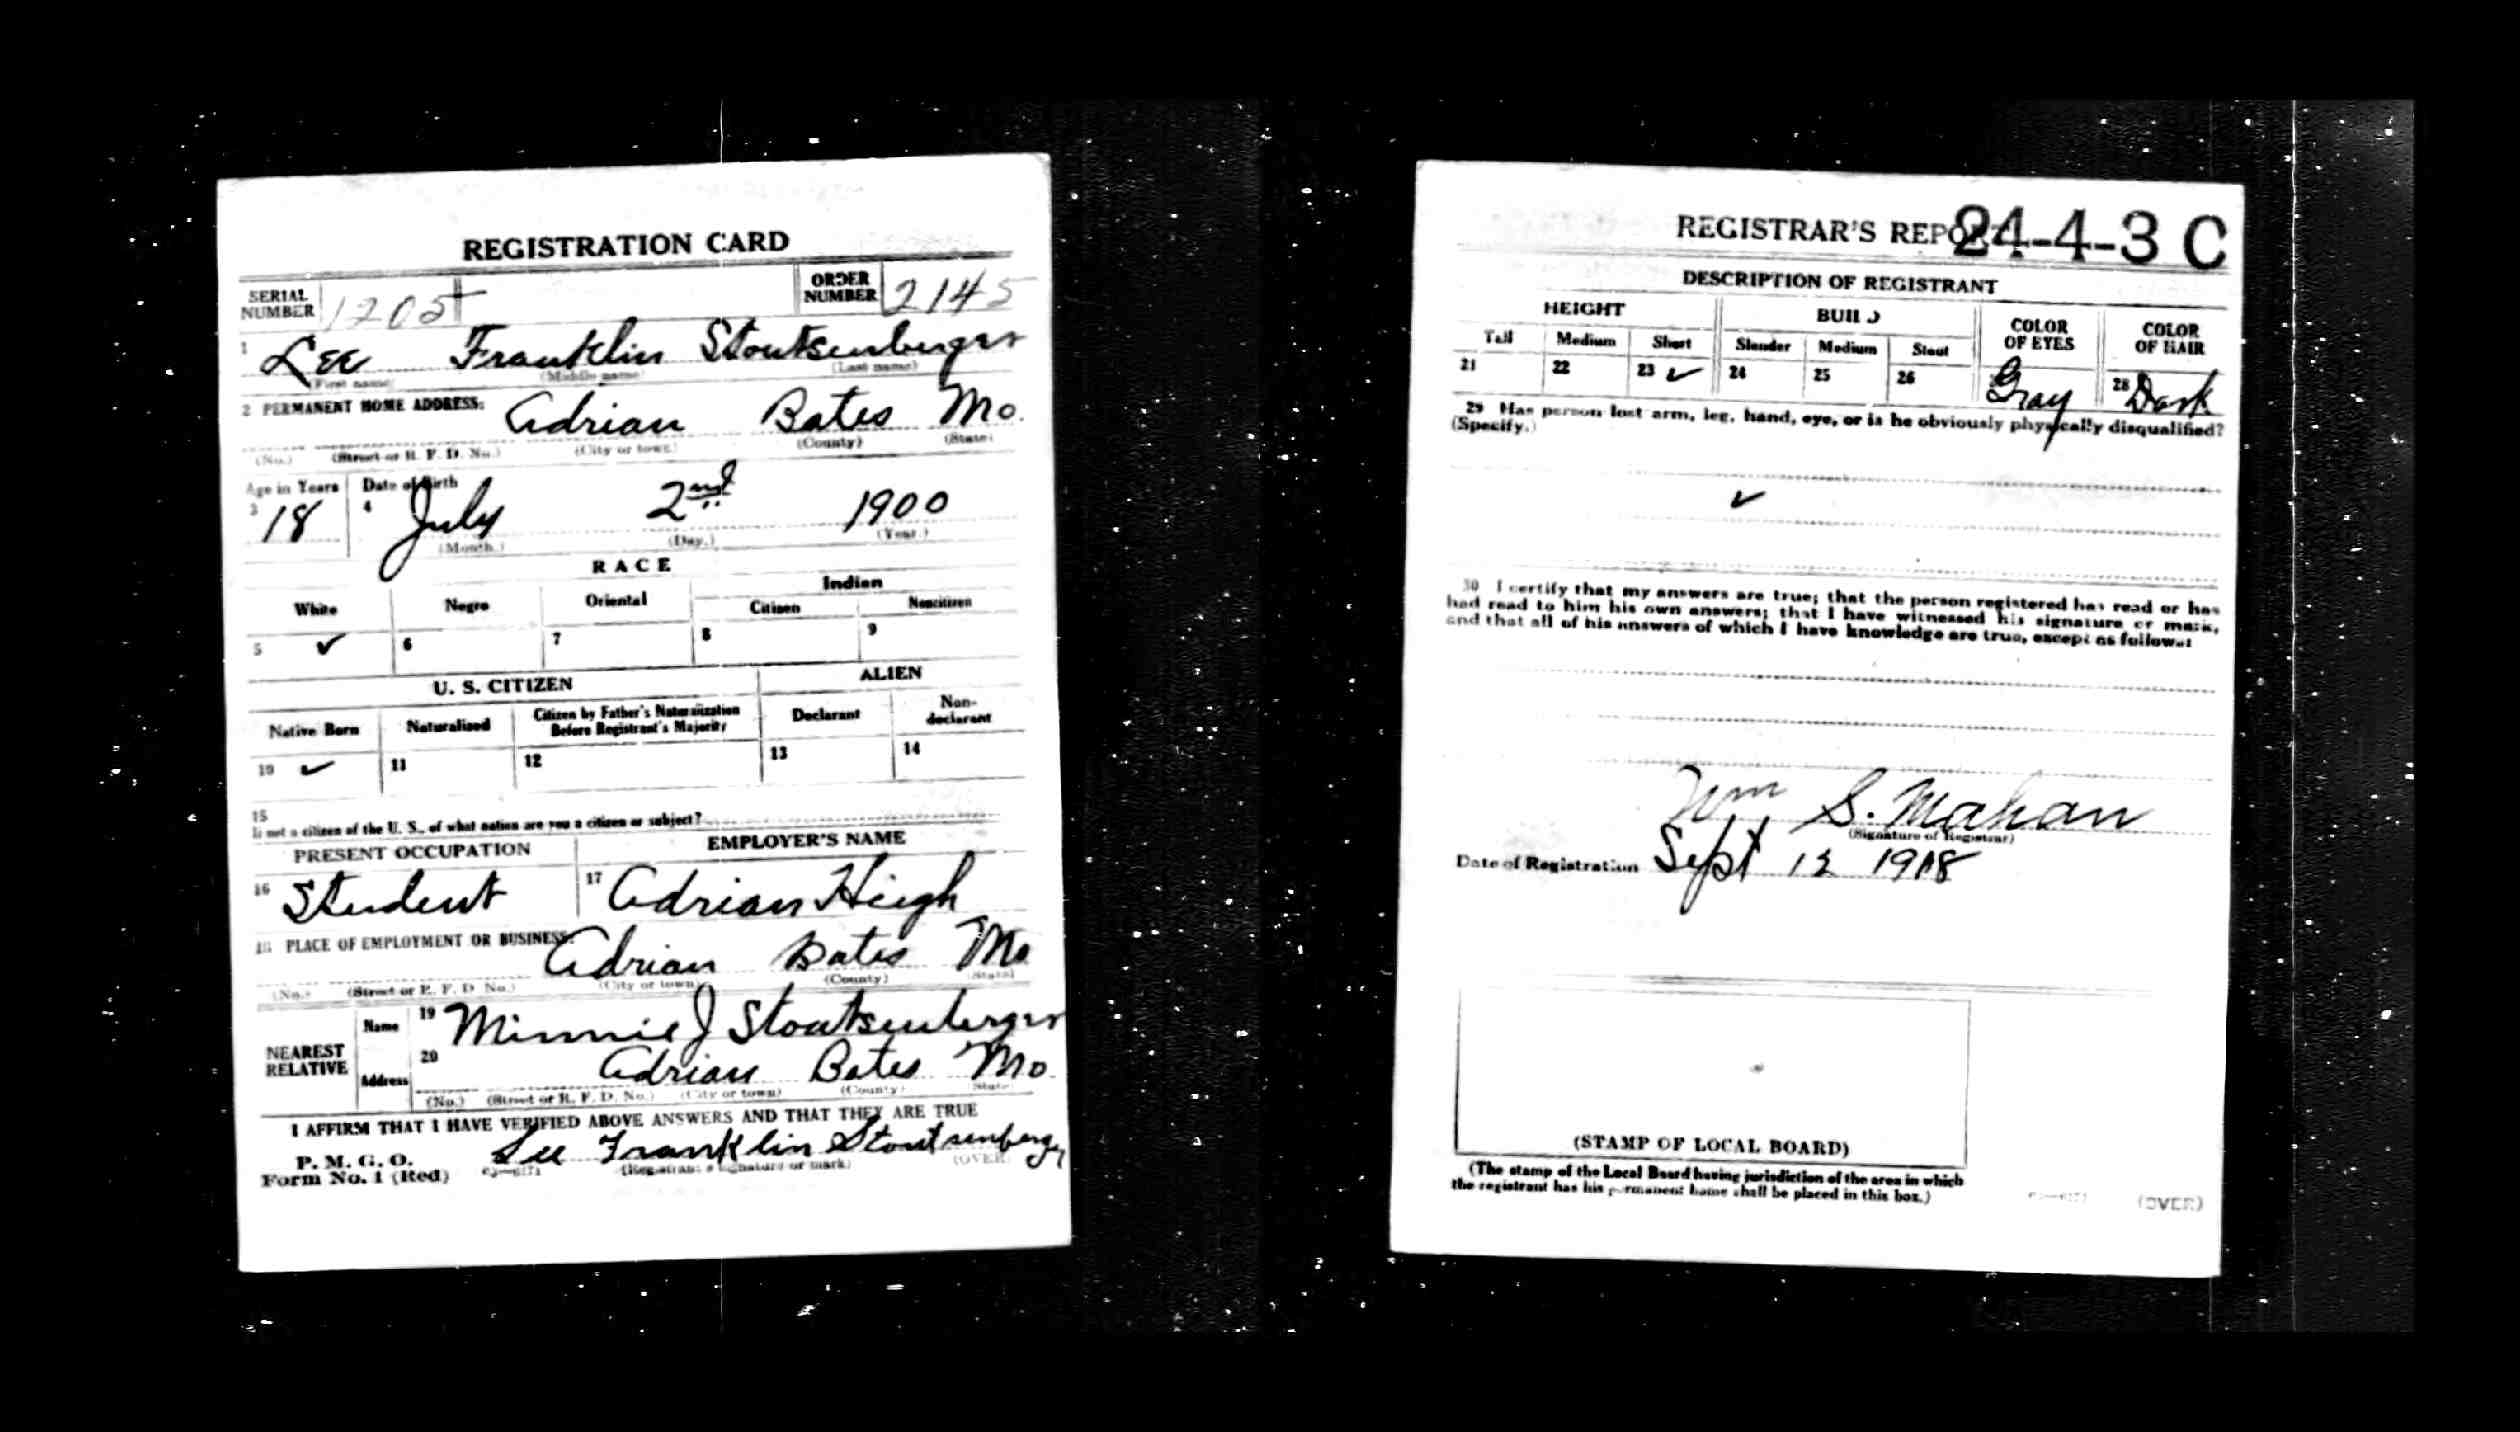 REGISTRATION CARD
SERIAL NUMBER 1205 ORDER NUMBER 2145
1 Lee Franklin Stoutsenberger
(First name) (Middle name) (Last name)
2 PERMANENT HOME ADDRESS: Adrian Bates Mo.
(No.) (Street or R. F. D. No.) (City or town) (County) (State)
Age in Years Date of Birth
3 18 4 July 2nd 1900
(Month.) (Day.) (Year.)
RACE
White Negro Oriental Indian
Citizen Noncitizen
5 ✓ 6 7 8 9
U. S. CITIZEN ALIEN
Native Born Naturalized Citizen by Father's Naturalization Before Registrant's Majority Declarant Non-declarant
10 ✓ 11 12 13 14
15
If not a citizen of the U. S., of what nation are you a citizen or subject?
PRESENT OCCUPATION EMPLOYER'S NAME
16 Student 17 Adrian High
18 PLACE OF EMPLOYMENT OR BUSINESS: Adrian Bates Mo
(No.) (Street or R. F. D. No.) (City or town) (County) (State)
NEAREST RELATIVE Name 19 Minnie J Stoutsenberger
Address 20 Adrian Bates Mo.
(No.) (Street or R. F. D. No.) (City or town) (County) (State)
I AFFIRM THAT I HAVE VERIFIED ABOVE ANSWERS AND THAT THEY ARE TRUE
P. M. G. O.
Form No. 1 (Red) Lee Franklin Stoutsenberger
(Registrant's signature or mark) (OVER)
REGISTRAR'S REPORT
24-4-3 C
DESCRIPTION OF REGISTRANT
HEIGHT BUILD COLOR OF EYES COLOR OF HAIR
Tall Medium Short Slender Medium Stout
21 22 23 ✓ 24 25 26 Gray 28 Dark
29 Has person lost arm, leg, hand, eye, or is he obviously physically disqualified?
(Specify.)
✓
30 I certify that my answers are true; that the person registered has read or has
had read to him his own answers; that I have witnessed his signature or mark,
and that all of his answers of which I have knowledge are true, except as follows:
Wm S. Mahan
(Signature of Registrar)
Date of Registration Sept 12 1918
(STAMP OF LOCAL BOARD)
(The stamp of the Local Board having jurisdiction of the area in which
the registrant has his permanent home shall be placed in this box.)
(OVER)